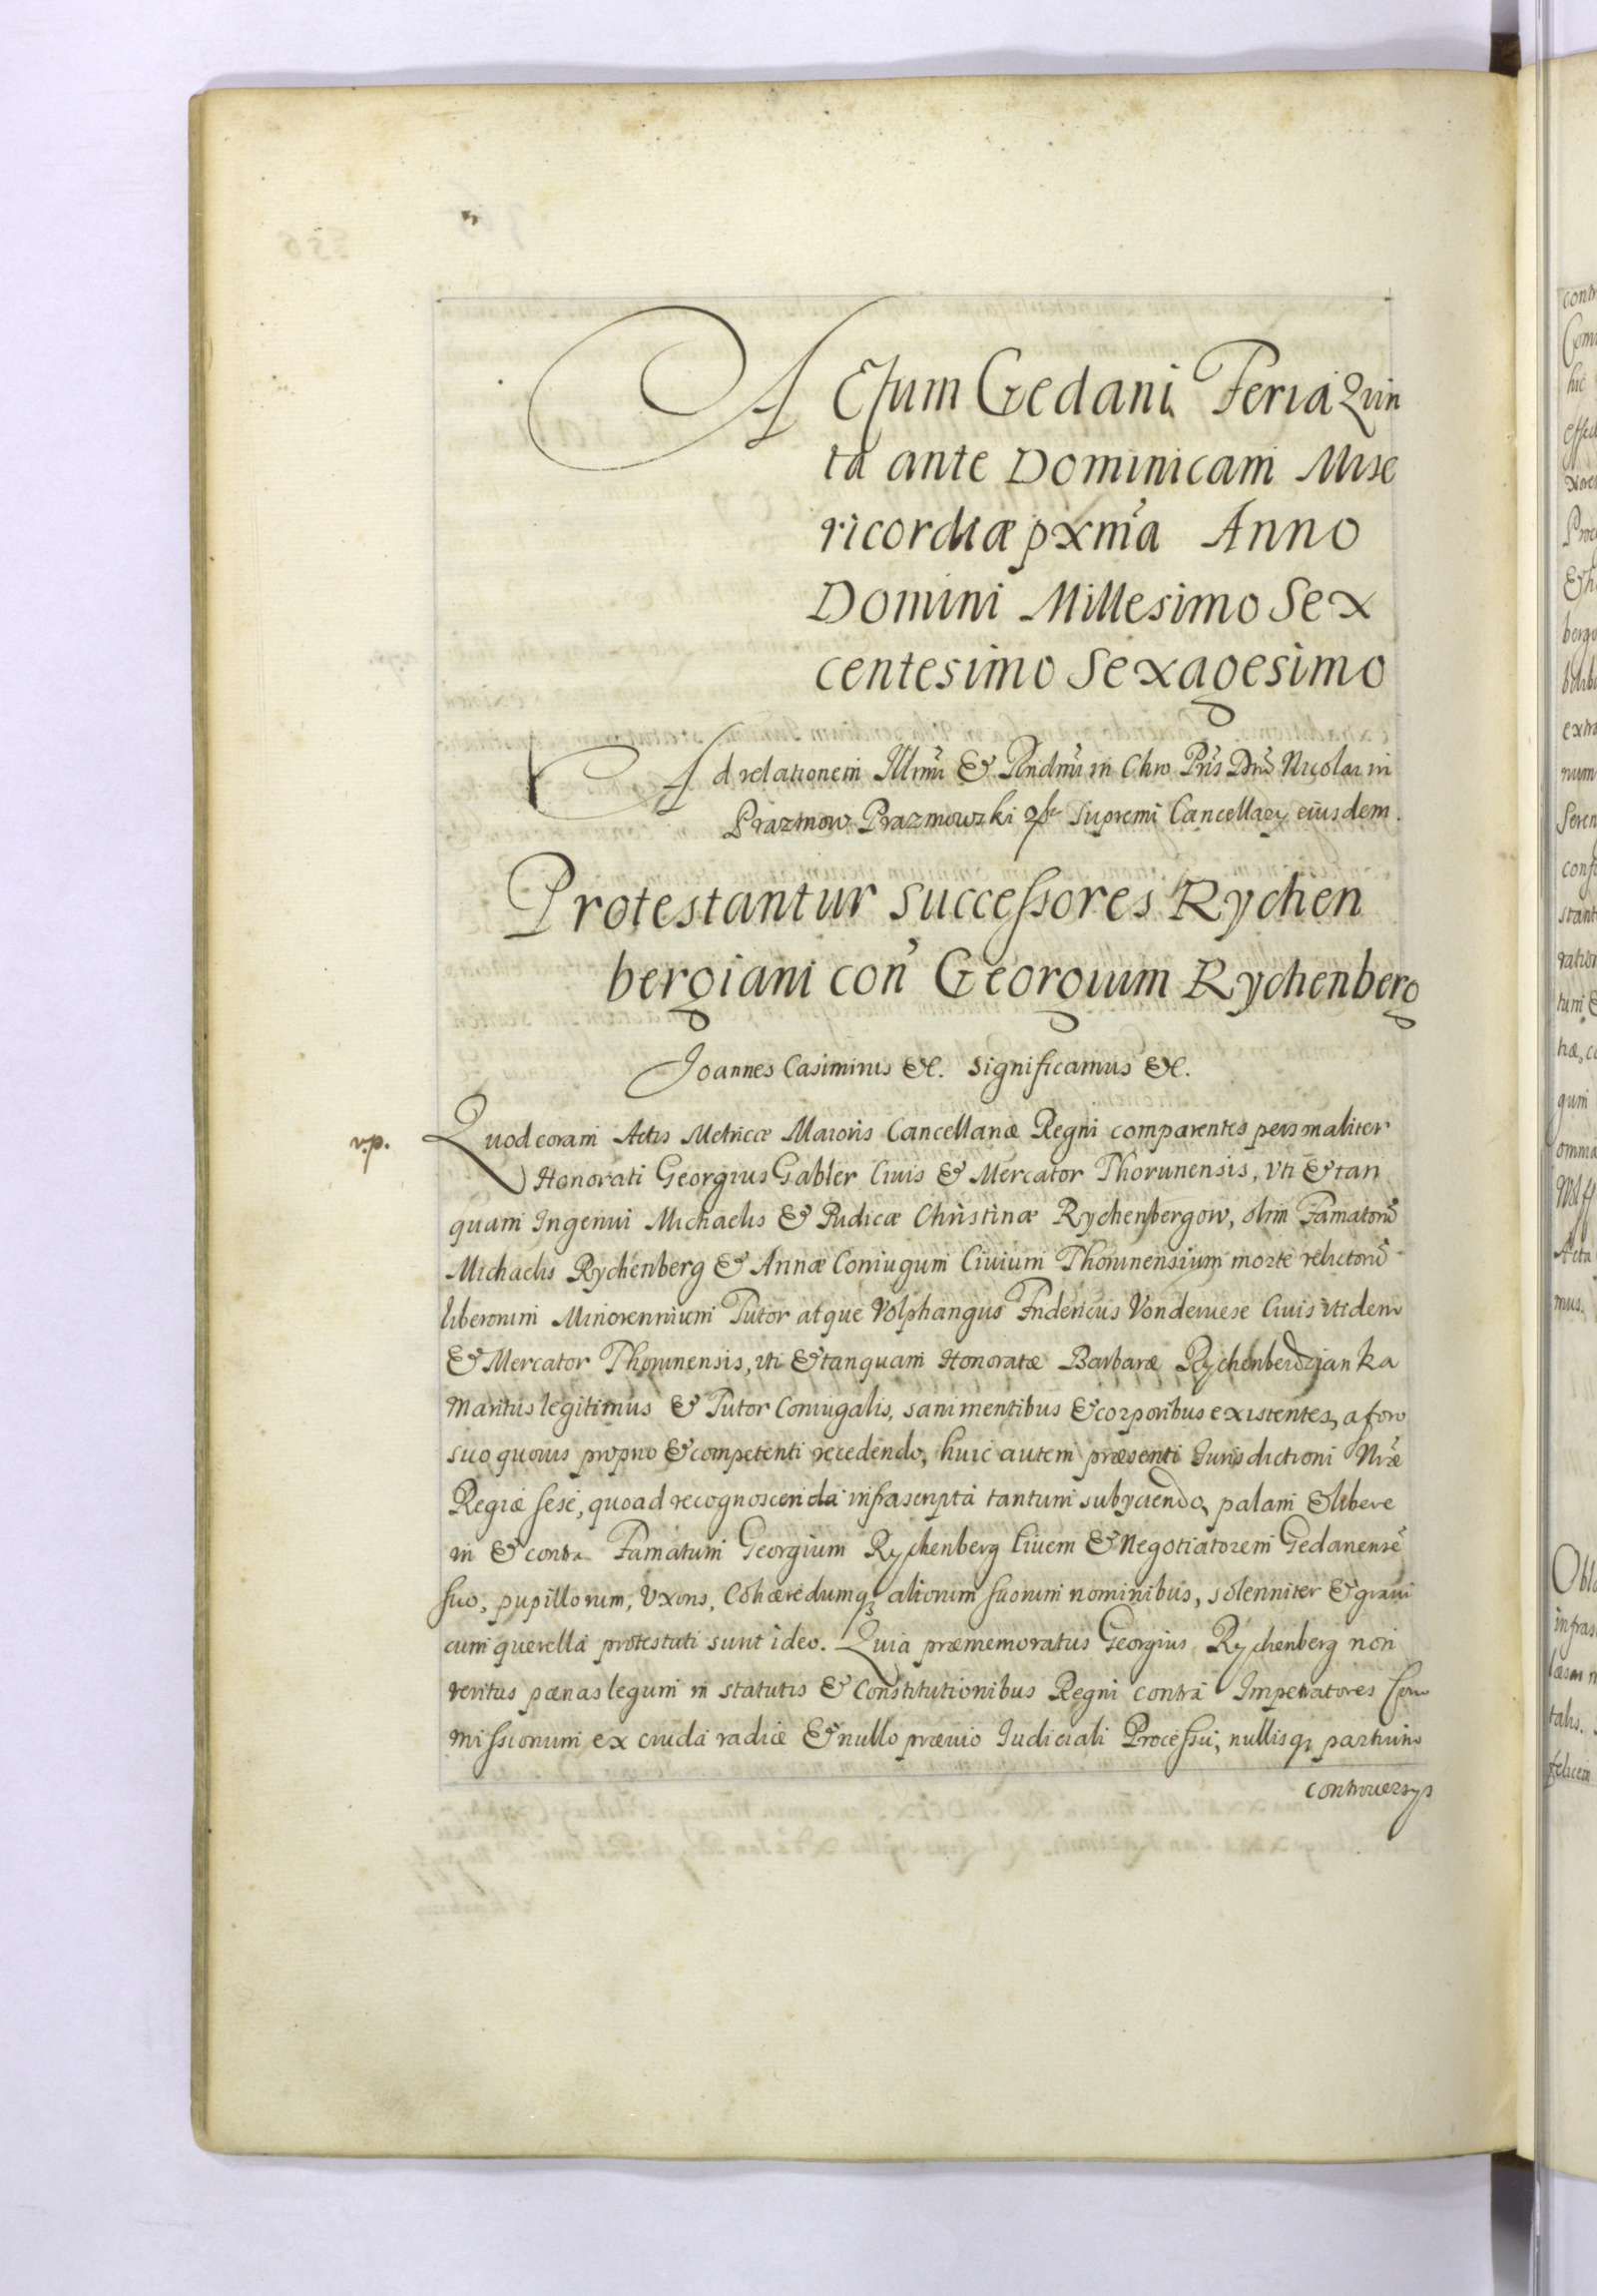 Actum Gedani Feria Quin
ta ante Dominicam Mise
ricordiæ pxm̃a Anno
Domini Millesimo Sex
centesimo Sexagesimo
Ad relationem Illm̃i & Rndm̃i in Chro Pr̃is Dnĩ Nicolai in
Prazmow Prazmowski Supremi Cancellarÿ eiusdem.
Protestantur successores Rychen
bergiani con̾ Georgium Rychenberg
Joannes Casimirus &c. significamus &c.
v.p.
Quod coram Actis Metricæ Maioris Cancellariæ Regni comparentes personaliter
Honorati Georgius Gabler Ciuis & Mercator Thorunensis, vti & tan
quam Ingenui Michaelis & Pudicæ Christinæ Rychenbergow, olim Famatorũ
Michaelis Rychenberg & Annæ Coniugum Ciuium Thorunensium morte relictorũ
liberorum Minorennium Tutor atque Volphangus Fridericus Vonderwese Ciuis itidem
& Mercator Thorunensis, vti & tanquam Honoratæ Barbaræ Rychenberdzianka
Maritus legitimus & Tutor Coniugalis, sani mentibus & corporibus existentes, a foro
suo quouis proprio & competenti recedendo, huic autem præsenti Iurisdictioni Nr̃æ
Regiæ sese, quoad recognoscenda infrascripta tantum subÿciendo, palam & libere
in & contra Famatum Georgium Rychenberg Ciuem & Negotiatorem Gedanensẽ
suo, pupillorum, Vxoris, Cohæredumq₃ aliorum suorum nominibus, solenniter & graui
cum querella protestati sunt ideo. Quia præmemoratus Georgius Rychenberg non
veritus pænas legum in statutis & Constitutionibus Regni contra Impetratores Com
missionum ex cruda radice & nullo præuio Iudiciali Processu, nullisq₃ partium
controuersÿs